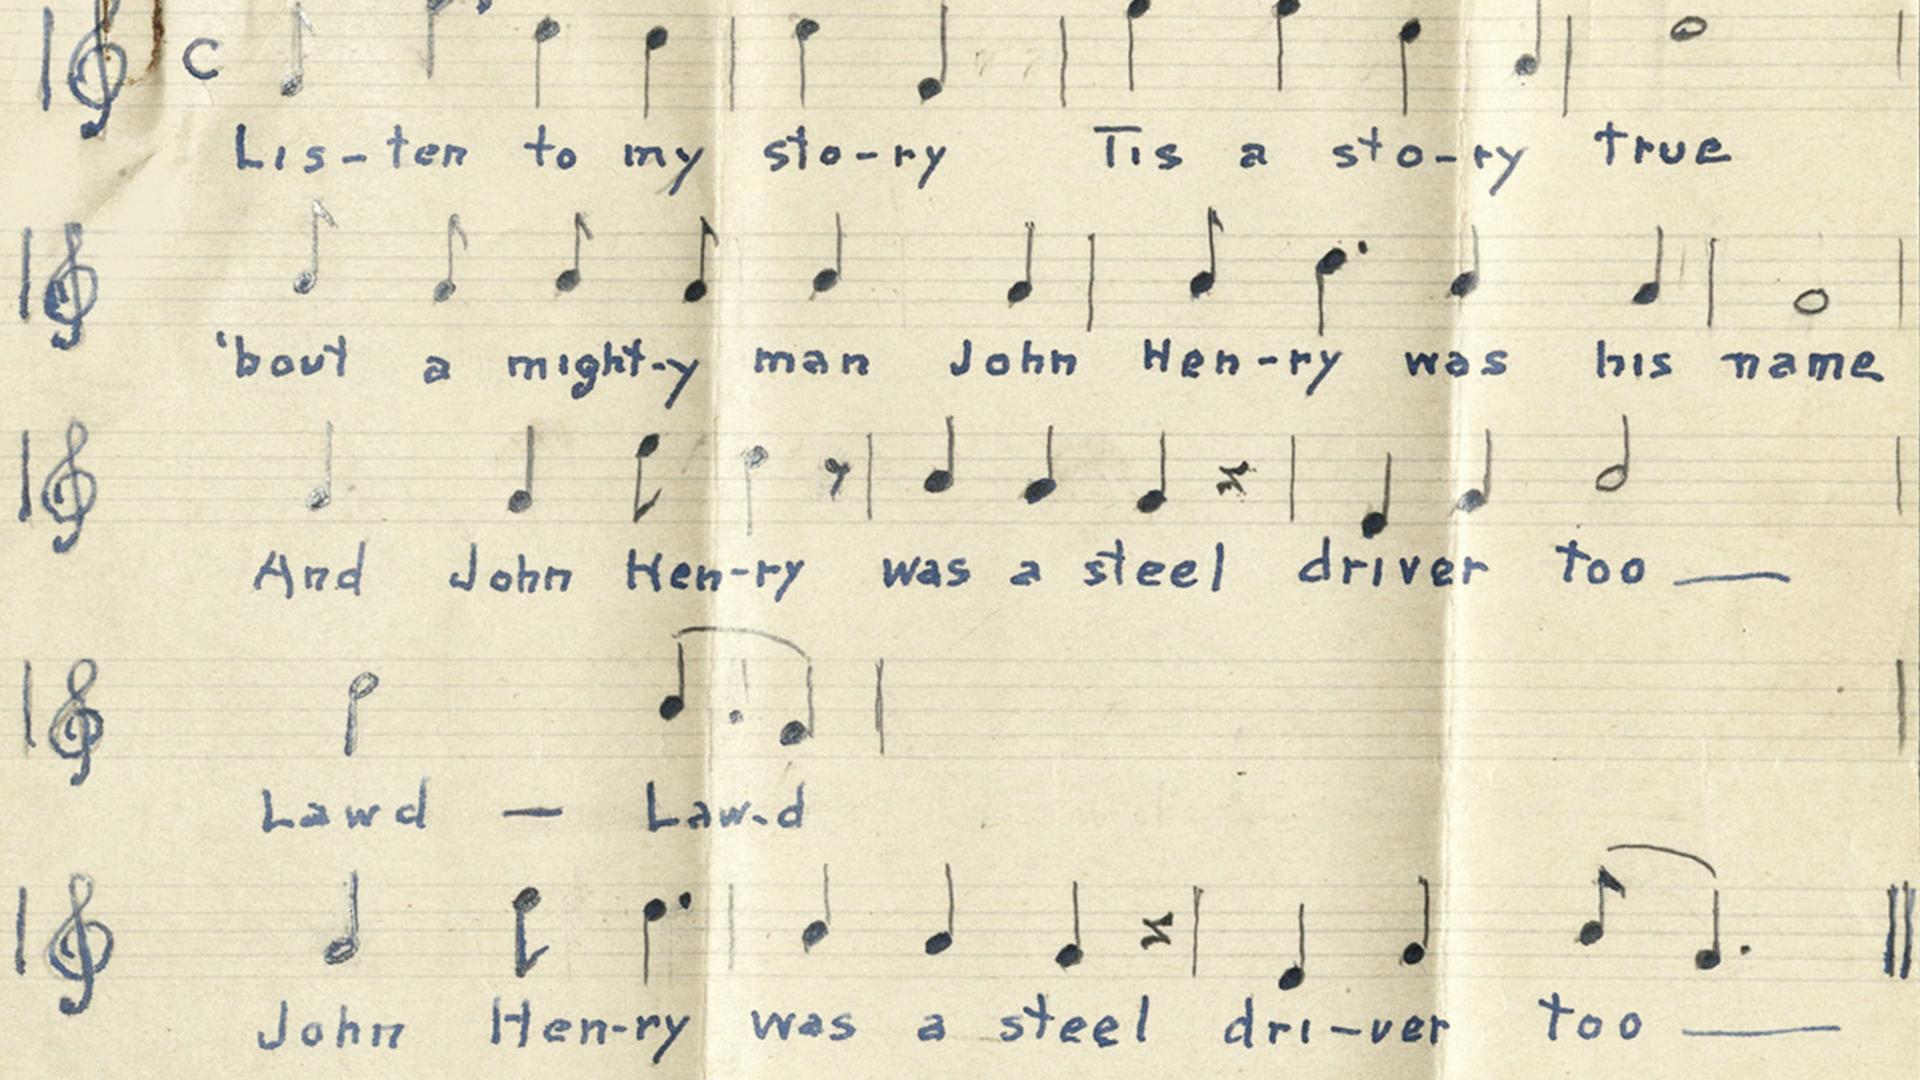 C
Lis-ten to my sto-ry Tis a sto-ry true
'bout a might-y man John Hen-ry was his name
And John Hen-ry was a steel driver too —
Lawd — Law-d
John Hen-ry was a steel dri-ver too —